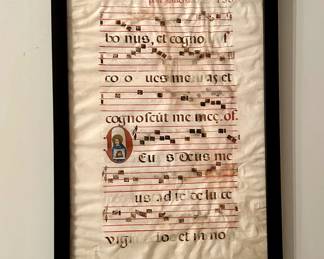 bo nus, et cogno
co o ues me
cognoscūt me mee, of.
Eu s Deus me
us ad te de lu ce
vigi lo et in no